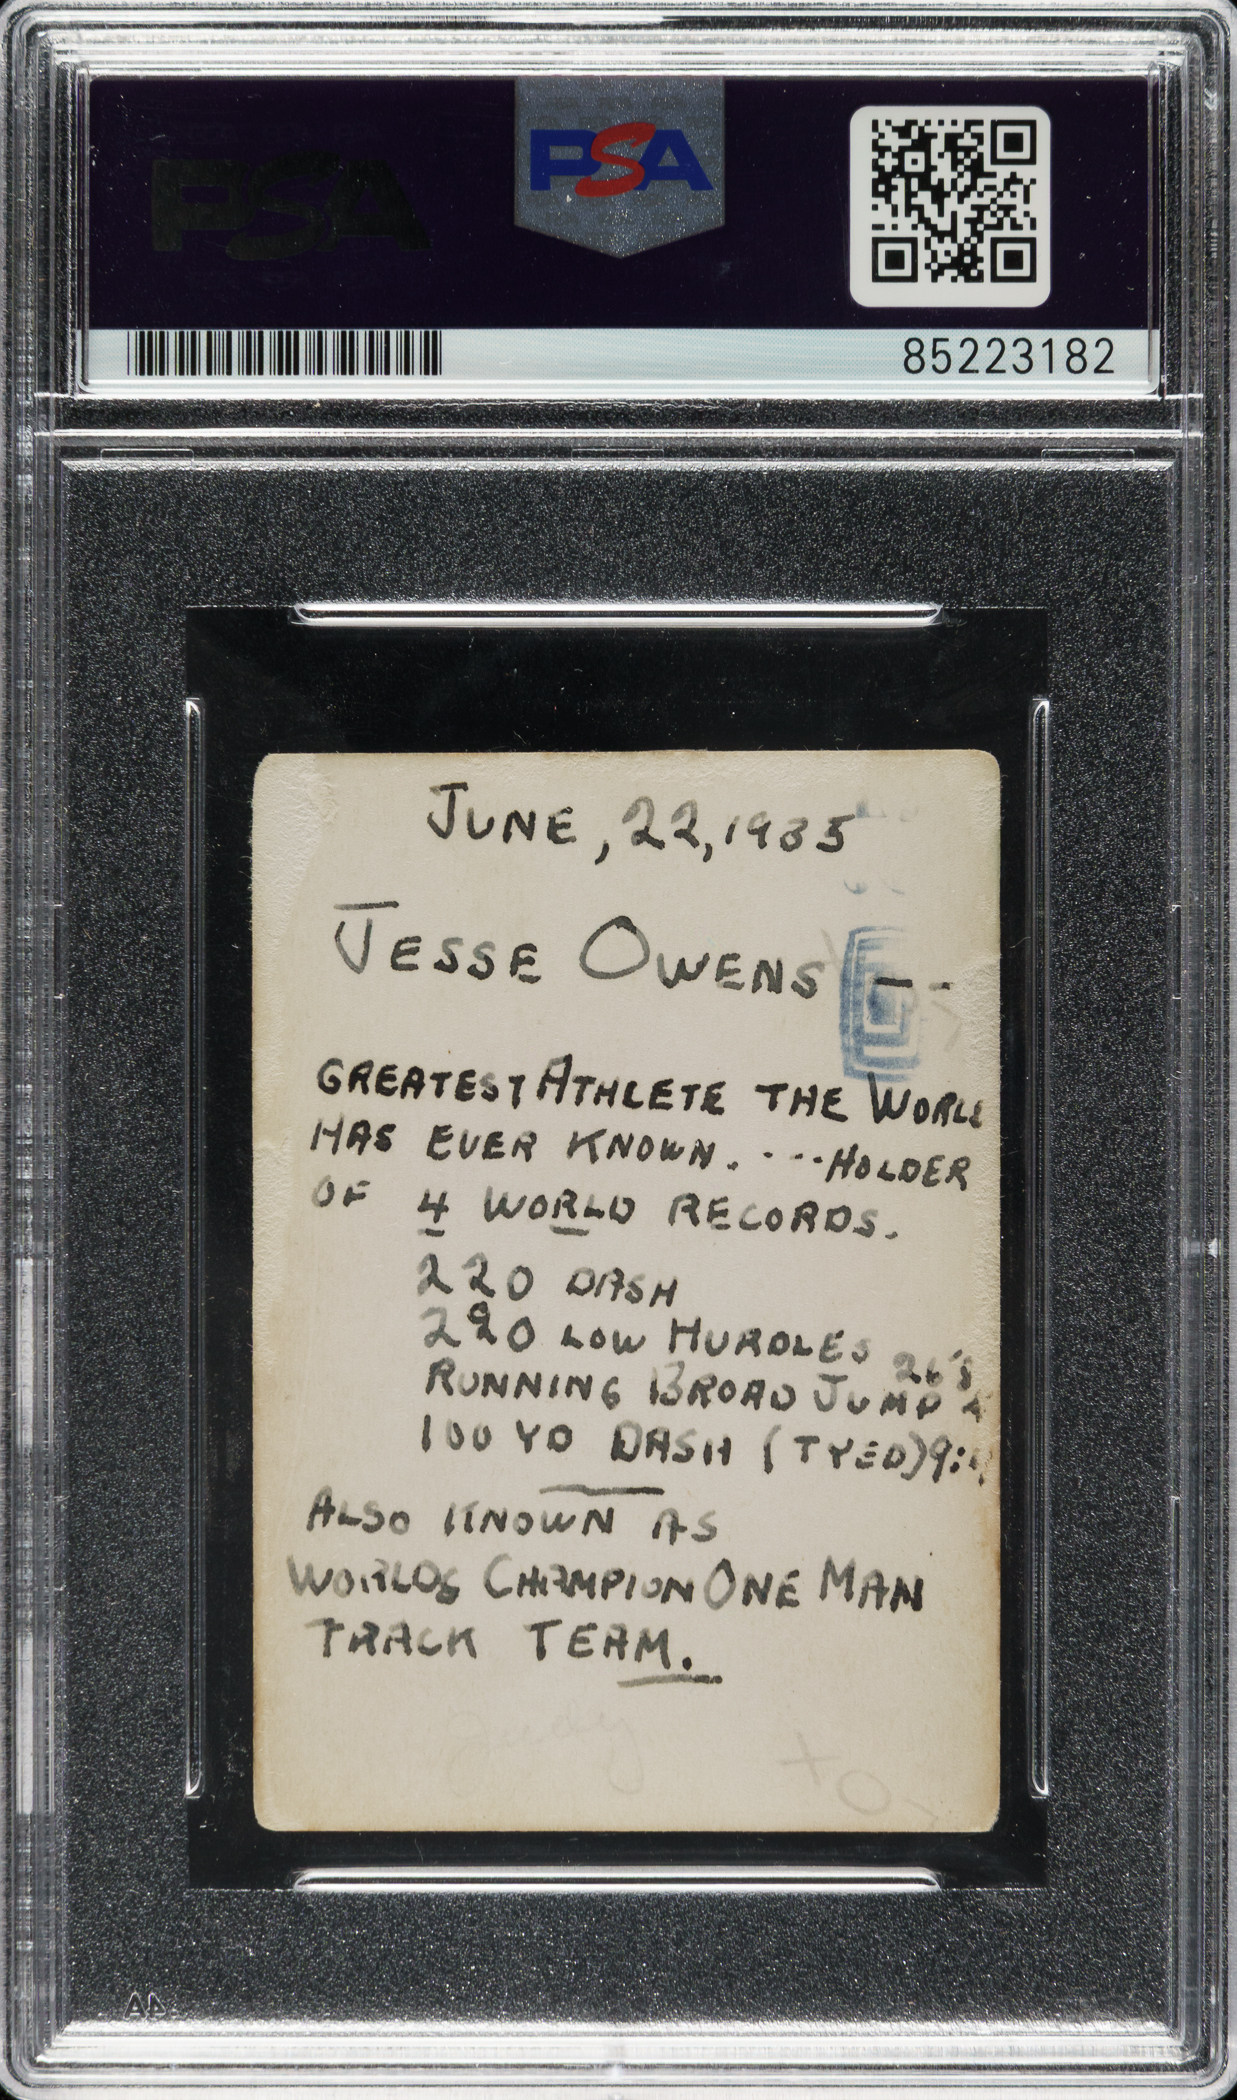 PSA
PSA
85223182
JUNE, 22, 1935
JESSE OWENS --
GREATEST ATHLETE THE WORLD
HAS EVER KNOWN. ---HOLDER
OF 4 WORLD RECORDS.
220 DASH
220 LOW HURDLES
26'8
RUNNING BROAD JUMP
100 YD DASH (TYED) 9:4
ALSO KNOWN AS
WORLDS CHAMPION ONE MAN
TRACK TEAM.
Judy